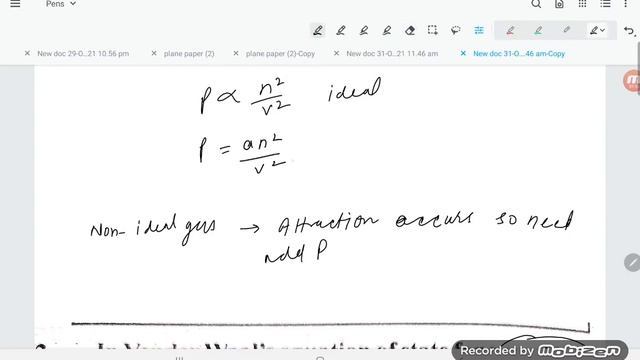 Pens
New doc 29-O...21 10.56 pm
plane paper (2)
plane paper (2)-Copy
New doc 31-O...21 11.46 am
New doc 31-O...46 am-Copy
P ∝ n²/v² ideal
P = an²/v²
Non-ideal gas → Attraction occurs so need
add P
Recorded by
Mobizen